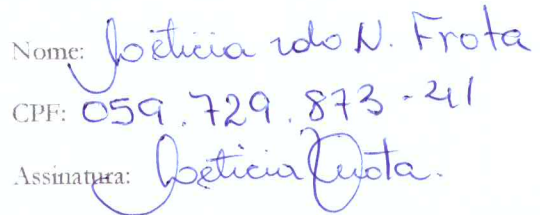 Nome: Loeticia do N. Frota
CPF: 059.729.873-21
Assinatura: Loeticia Frota.